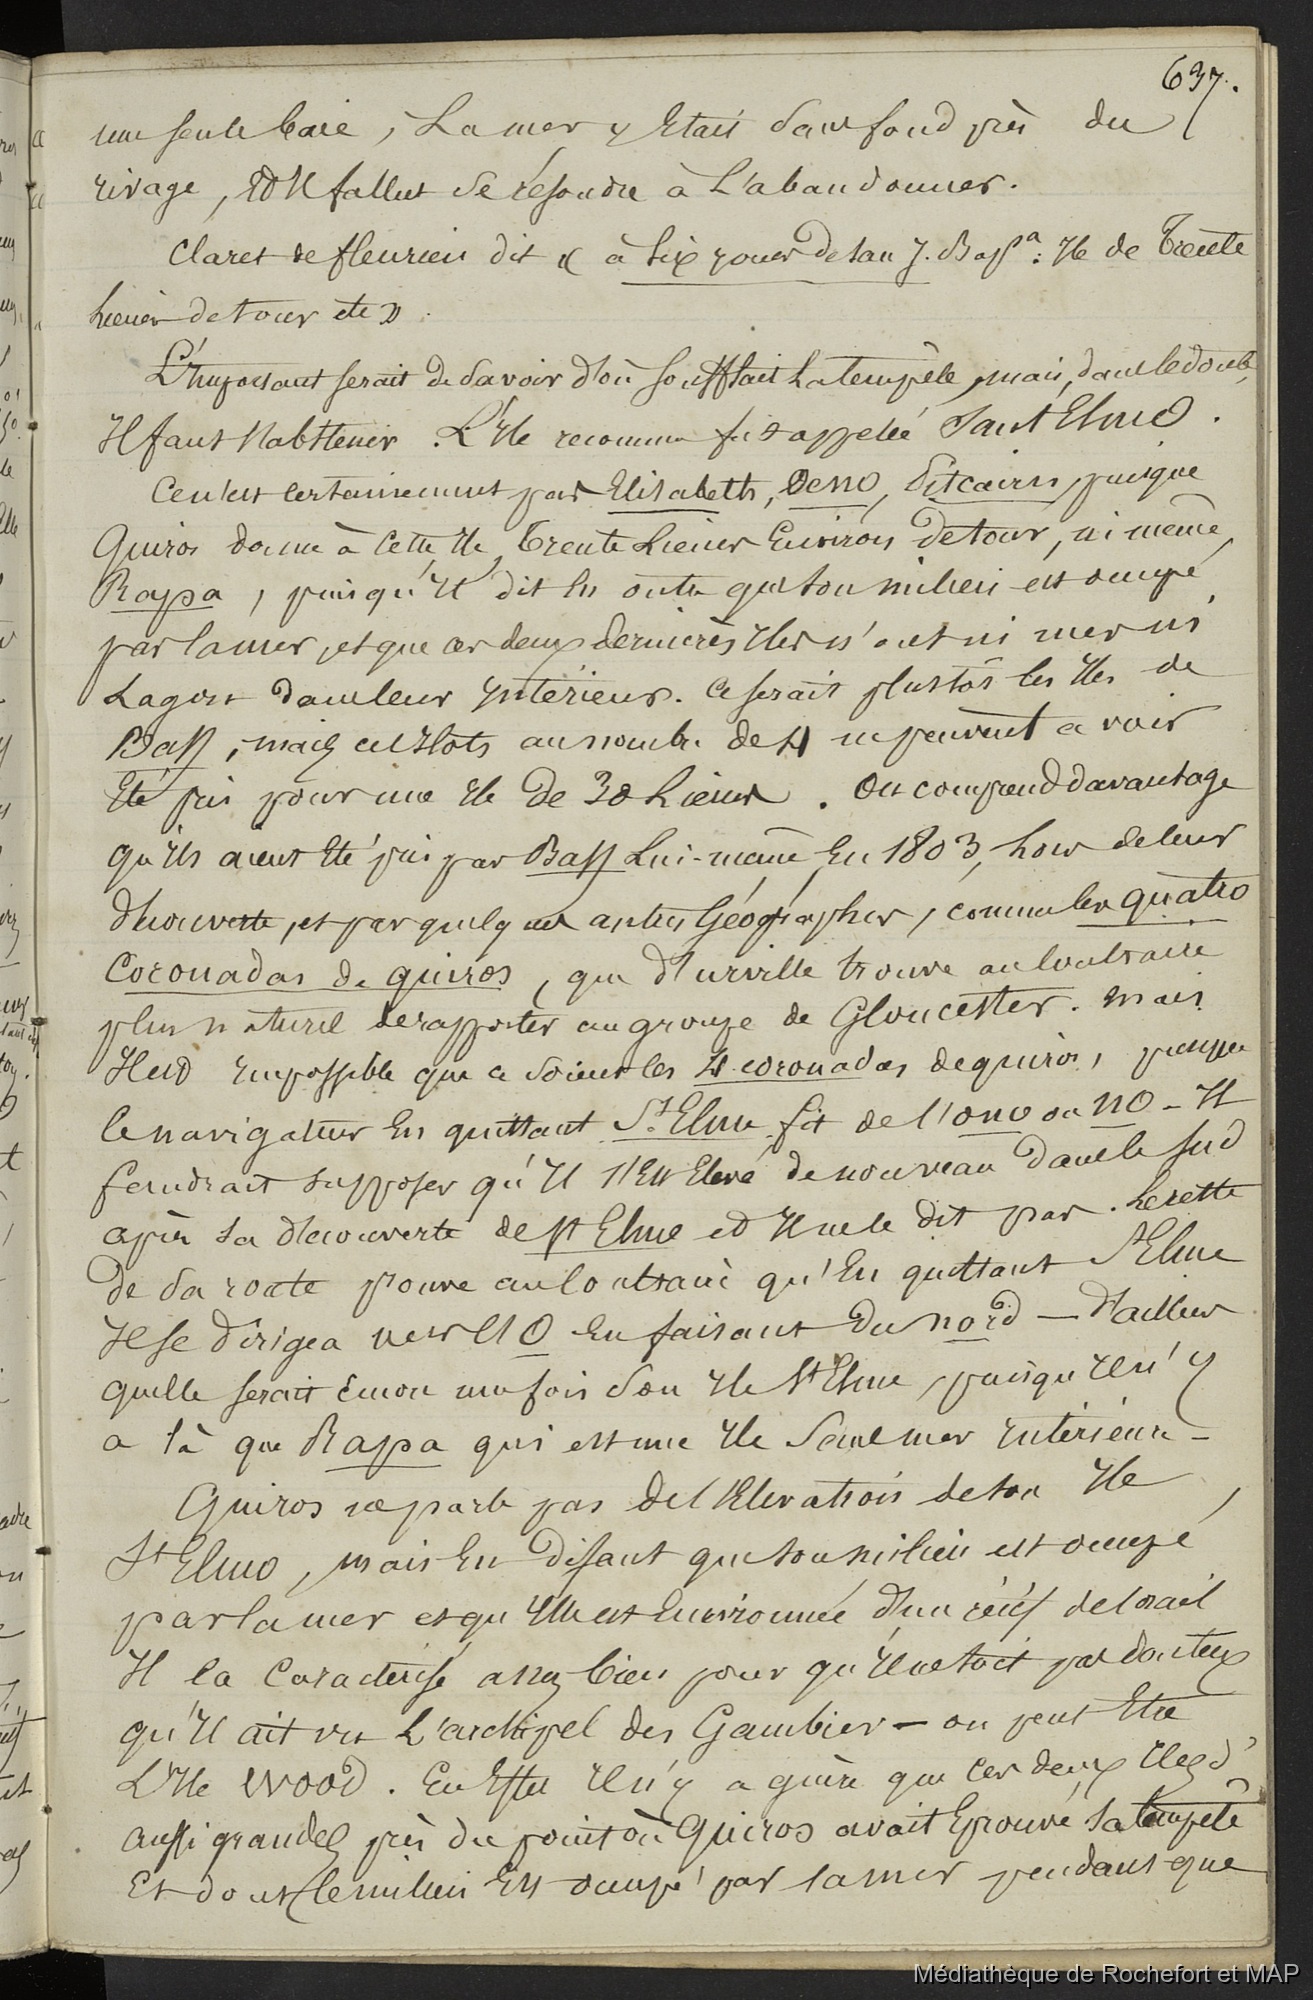 637.
une seule baie, La mer y Etait sans fond près du
rivage, Et Il fallut se résoudre à L'abandonner.
Claret de fleurieu dit « à six jours de san J. Bapta: Ile de Trente
Lieues de tour etc »
L'Important serait de savoir d'où soufflait La tempête, mais, dans le doute,
Il faut s'abstenir. L'Ile reconnue fut appelée Sant Elmo.
Ce n'est certainement pas Elisabeth, Oeno, Pitcairn, puisque
Quiros donne à cette Ile, Trente Lieues Environ de tour, ni même
Rapa, puisqu'Il dit En outre que son milieu est occupé
par la mer, et que ces deux dernières Iles n'ont ni mer ni
Lagon dans leur Intérieur. Ce serait plustôt les Iles de
Bass, mais ces Ilots au nombre de 4 ne peuvent avoir
Eté pris pour une Ile de 30 Lieues. On comprend davantage
qu'Ils aient Eté pris par Bass Lui-même, En 1803, Lors de leur
découverte, et par quelques autres Géographes, comme les quatro
Coronadas de quiros, que d'urville trouve au Contraire
plus naturel de rapporter au groupe de Gloucester. Mais
Il est Impossible que ce soient les 4 coronadas de quiros, puisque
le navigateur En quittant St Elme fit de l'ono ou no - Il
faudrait supposer qu'Il s'Est Elevé de nouveau dans le sud
après sa découverte de St Elme et Il ne le dit pas. Le reste
De sa route prouve au Contraire qu'En quittant St Elme
Il se dirigea vers l'O En faisant du nord — d'ailleurs
quelle serait Encore une fois son Ile St Elme, puisqu'Il n'y
a là que Rapa qui est une Ile sans mer Intérieure -
Quiros ne parle pas de l'Elevation de son Ile
St Elmo, mais En disant que son milieu est occupé
par la mer et qu'Elle est Environnée d'un récif de Corail
Il la Caractérise assez bien pour qu'Il ne soit pas douteux
qu'Il ait vu L'archipel des Gambier — ou peut Etre
L'Ile Wood. En Effet Il n'y a guère que ces deux Iles d'
aussi grandes près du point où Quiros avait Eprouvé sa tempête
Et dont le milieu Est occupé par la mer pendant que
Médiathèque de Rochefort et MAP